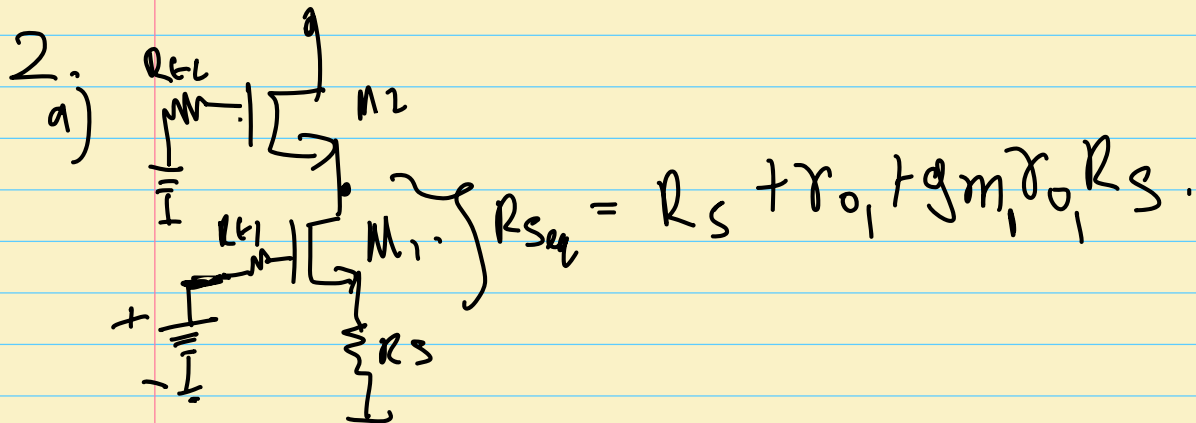 2.
a)
RG2
M2
RG1
M1.
RSeq = RS + ro1 + gm1 ro1 RS.
+
-
RS